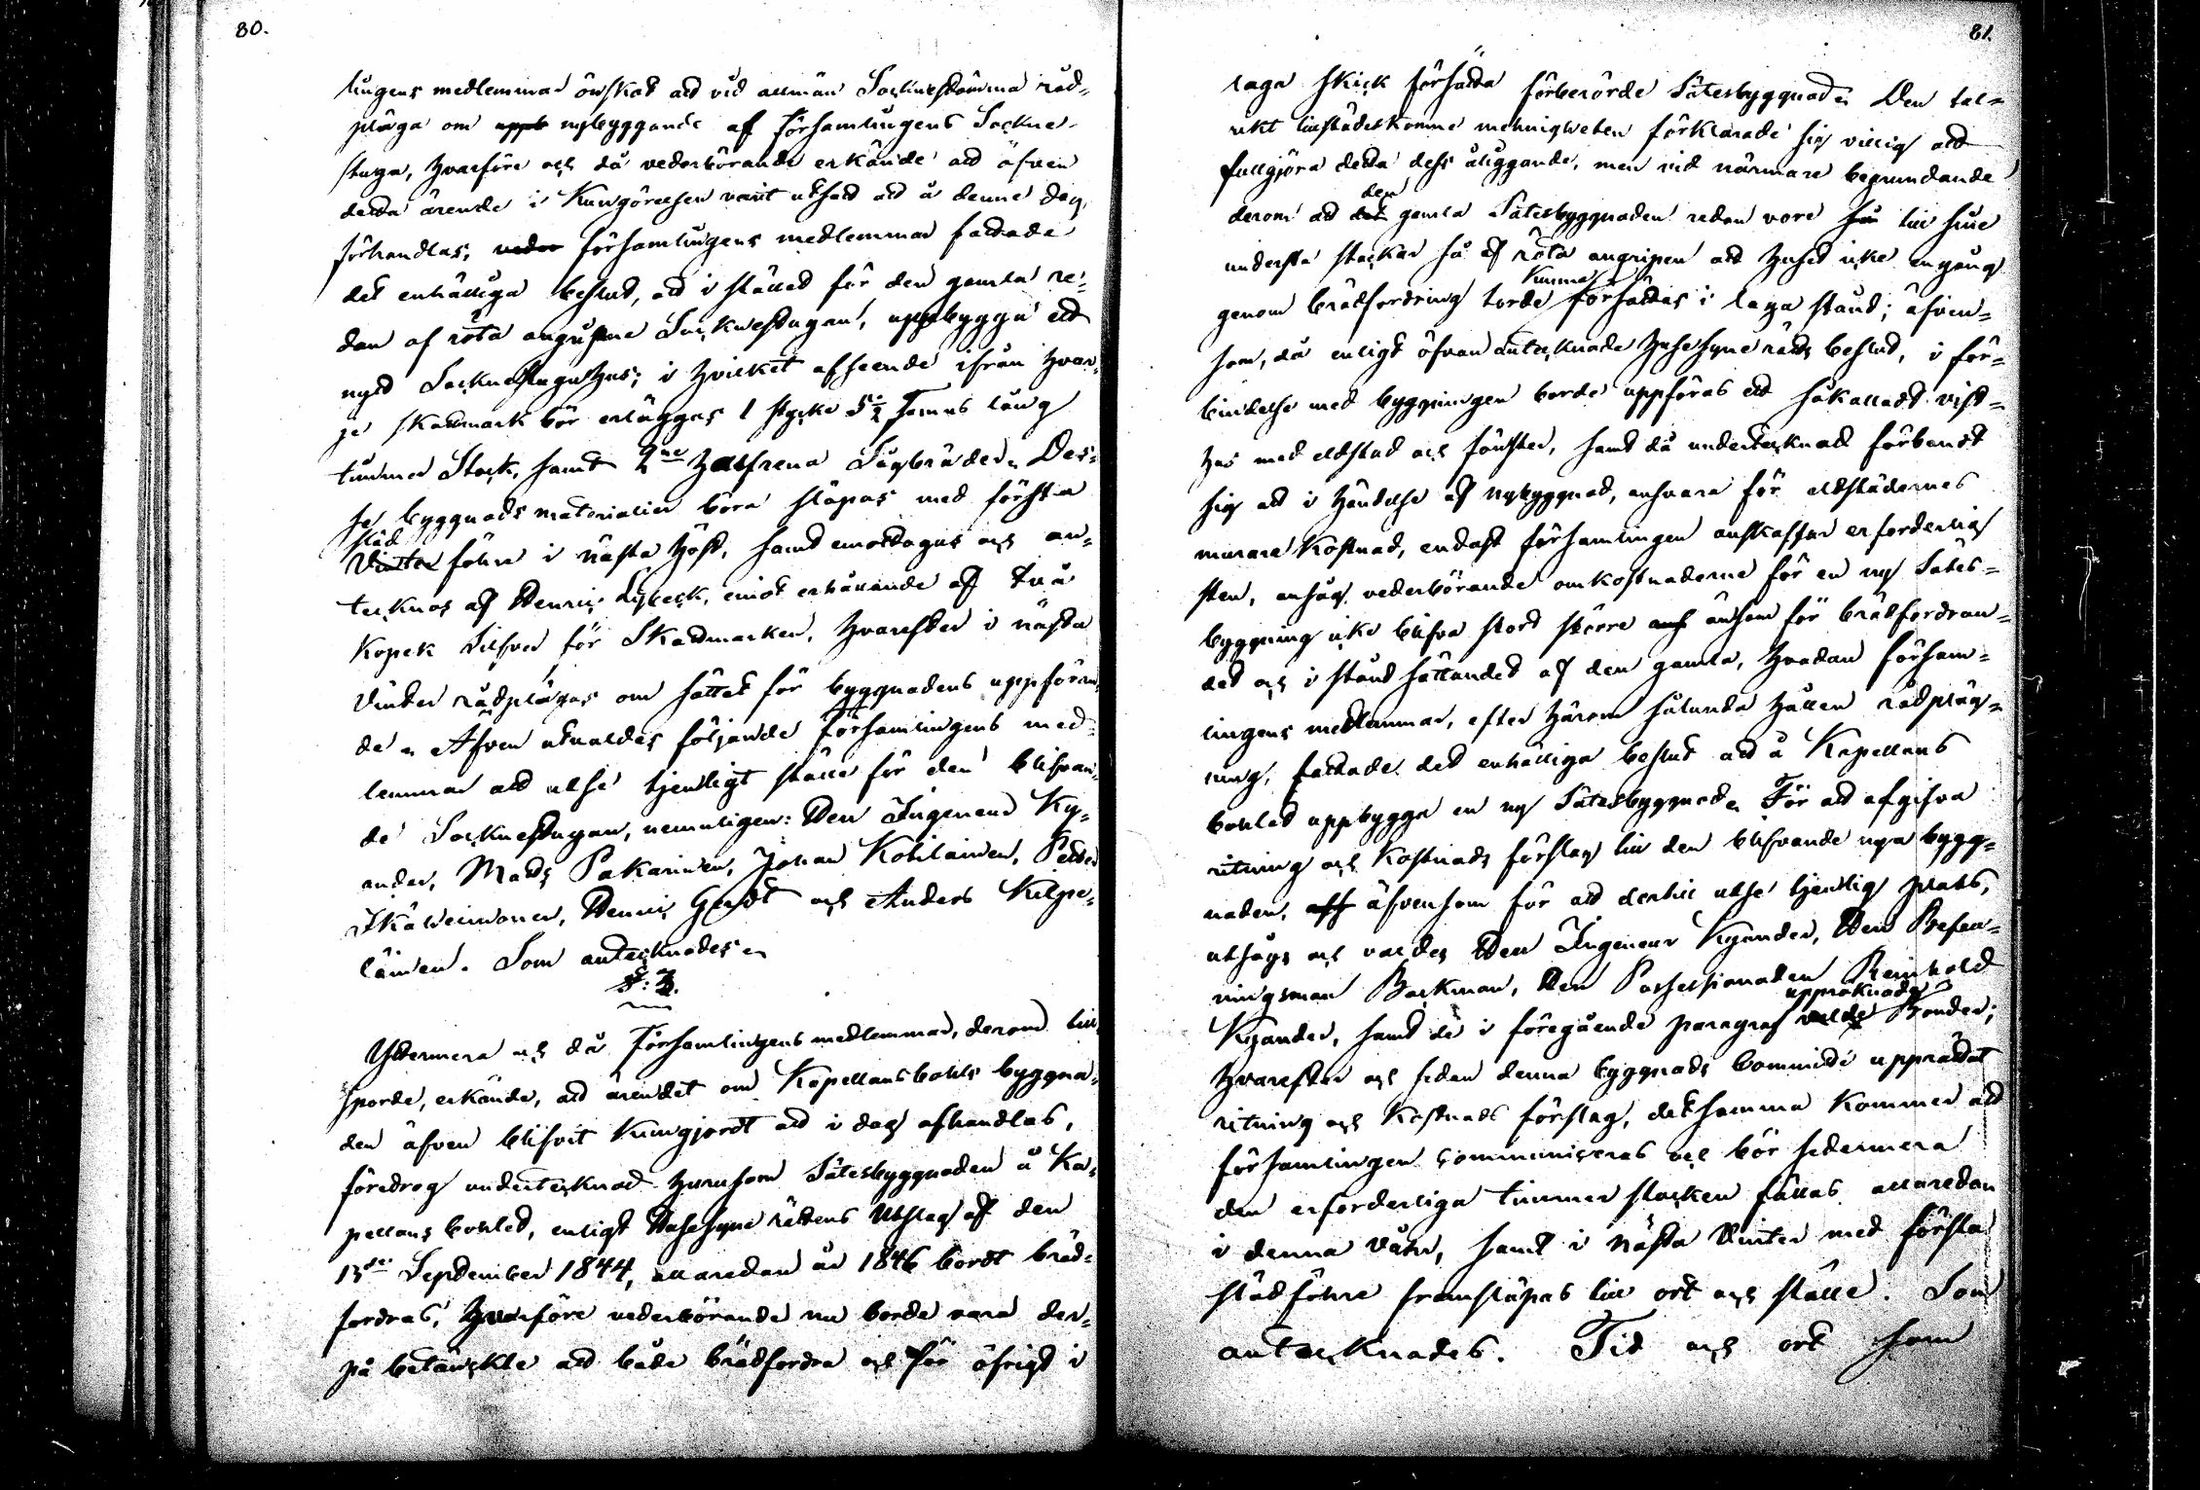 80.
lingens medlemmar önskat att vid allmän Socknestämma råd-
pläga om uppb nybyggande af Församlingens Sockne-
stuga, hvarföre och då vederbörande erkände att äfven
detta ärende i Kungörelsen varit utsatt att å denne dag
förhandlas, församlingens medlemmar fattade
det enhälliga beslut, att i stället för den gamla re-
dan af röta angripne Socknestugan, uppbygga ett
nytt Socknestuguhus; i hvilket afseende ifrån hvar-
je skattmark bör erläggas 1 stycke 5½ famns lång
timmer Stock, samt 2ne halfrena Sågbräder. Des-
se byggnads materialier böra släpas med första
släd
Vinter föhre i nästa höst, samt emottagas och an-
tecknas af Henric Lybeck, emot erhållande af två
Kopek Silfver för Skattmarken, hvarefter i nästa
Vinter rådplägas om sättet för byggnadens uppföran-
de. Äfven utvaldes följande Församlingens med-
lemmar att utse tjenligt ställe för den blifvan-
de Socknestugan, nemligen: Herr Ingenieur Ky-
ander, Mats Pakarinen, Johan Kotilainen, Petter
Ikäweimonen, Henric och Anders Kilpe-
läinen. Som antecknades.
§: 3.
Yttermera och då Församlingens medlemmar, derom till
sporde, erkände, att ärendet om Kapellansbohls byggna-
den äfven blifvit kungjordt att i dag afhandlas,
föredrog undertecknad hurusom Sätesbyggnaden å Ka-
pellans bohlet, enligt Husesyne rättens Utslag af den
13de September 1844, allaredan år 1846 bordt bräd-
fordras, hvarföre vederbörande nu borde vara der-
på betänckte att både brädfordra och för öfrigt i
81.
laga skick försätta förberörde Sätesbyggnad. Den tal-
rikt tillstädeskomne menigheten förklarade sig villig att
fullgjöra detta dess åliggande, men vid närmare begrundande
den
derom att det gamla Sätesbyggnaden redan vore till sine
understa stockar så af röta angripen att huset icke engång
kunna
genom brädfordring torde försättas i laga stånd; äfven-
som, då enligt ofvan antecknade Husesyne rätts beslut, i för-
bindelse med byggningen borde uppföras ett såkalladt vist-
hus med eldstad och fönster, samt då undertecknad förbandt
sig att i händelse af nybyggnad, ansvara för eldstädernes
murare kostnad, endast församlingen anskaffar erforderlig
sten, ansåg vederbörande omkostnaderne för en ny Sätes-
byggning icke blifva stort större änsom för brädfordran-
det och i stånd sättandet af den gamla, hvadan försam-
lingens medlemmar, efter härom sålunda hållen rådpläg-
ning, fattade det enhälliga beslut att å Kapellans
bohlet uppbygga en ny Sätesbyggnad. För att afgifva
ritning och kostnads förslag till den blifvande nya bygg-
naden, äfvensom för att dertill utse tjenlig plats,
utsågs och valdes Herr Ingenieur Kyander, Herr Befall-
ningsman Backman, Herr Possessionaten Reinhold
uppräknade
Kyander, samt de i föregående paragraf valde Bönder;
hvarefter och sedan denna byggnads Committé upprättat
ritning och kostnads förslag, detsamma kommer att
församlingen communiceras och bör sedermera
den erforderliga timmer stocken fällas allaredan
i denna vår, samt i nästa Vinter med första
slädföhre framsläpas till ort och ställe. Som
antecknades. Tid och ort som